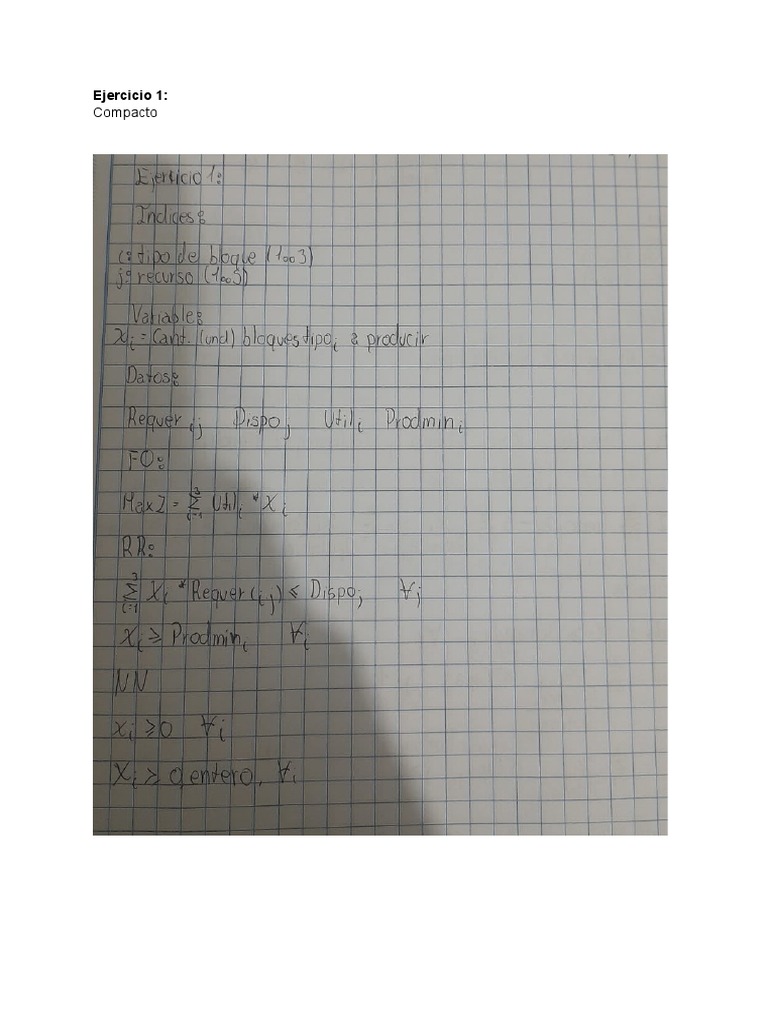 Ejercicio 1:
Compacto
Ejercicio 1:
Indices:
i: tipo de bloque (1..3)
j: recurso (1..5)
Variable:
Xi = Cant. (und) bloques tipo i a producir
Datos:
Requer ij Dispo j Util i Prodmin i
FO:
Max Z = 3 Σ i=1 Util i * X i
RR:
3 Σ i=1 Xi * Requer (i j) ≤ Dispo j ∀j
Xi ≥ Prodmin i ∀i
NN
xi ≥ 0 ∀i
Xi ≥ 0 entero, ∀i